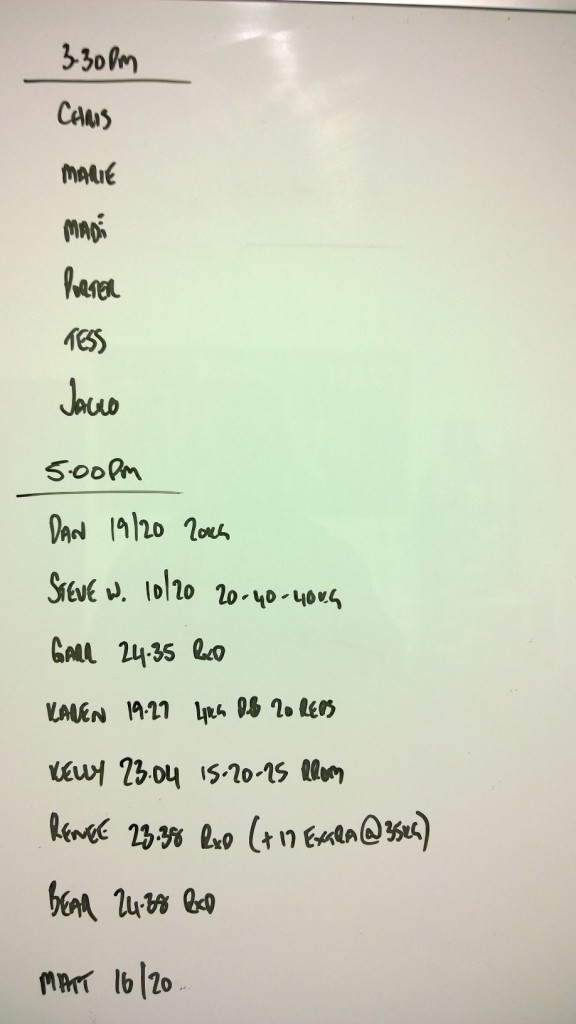 3.30PM
CHRIS
MARIE
MADi
PORTER
TESS
JACKO
5.00PM
DAN 19/20 20KG
STEVE W. 10/20 20-40-40KG
GARR 24.35 RxD
KAREN 19.27 4KG D.B 20 REPS
KELLY 23.04 15-20-25 RROM
RENEE 23.38 RxD (+17 EXTRA@35KG)
BEAR 24.38 RxD
MATT 16/20